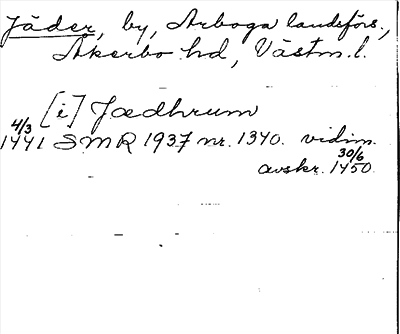 Jäder, by, Arboga landsförs.,
Åkerbo hd, Västm.l.
[i] Jædhrum
4/3
1441 SMR 1937 nr. 1340. vidim.
30/6
avskr. 1450.